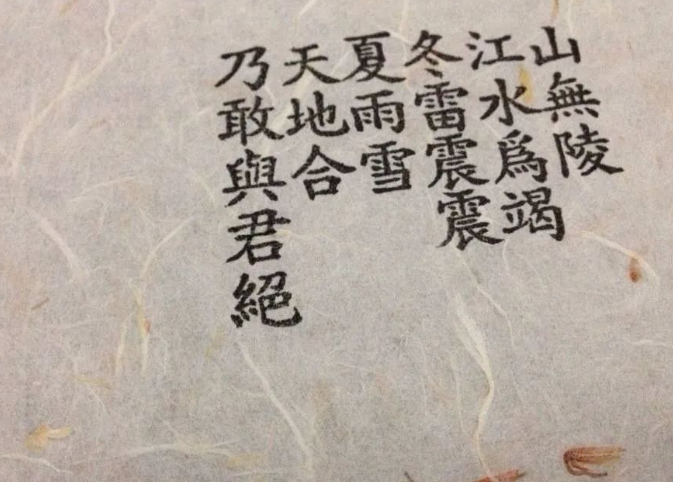 山無陵
江水為竭
冬雷震震
夏雨雪
天地合
乃敢與君絕